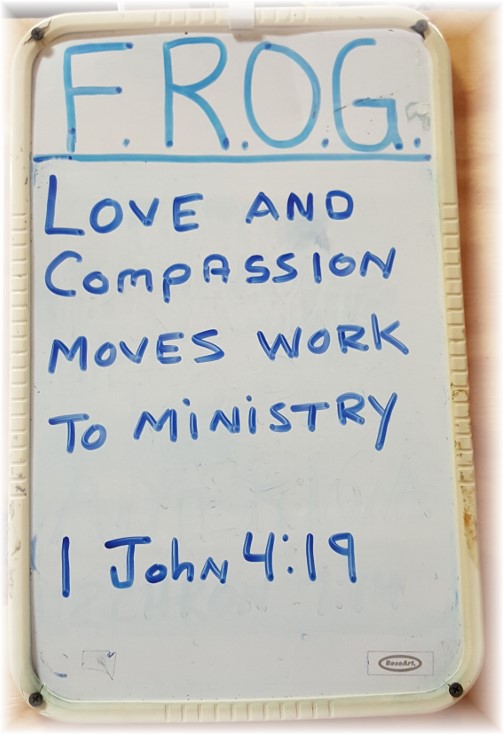 F.R.O.G.
LOVE AND
COMPASSION
MOVES WORK
TO MINISTRY
1 JOHN 4:19
RoseArt